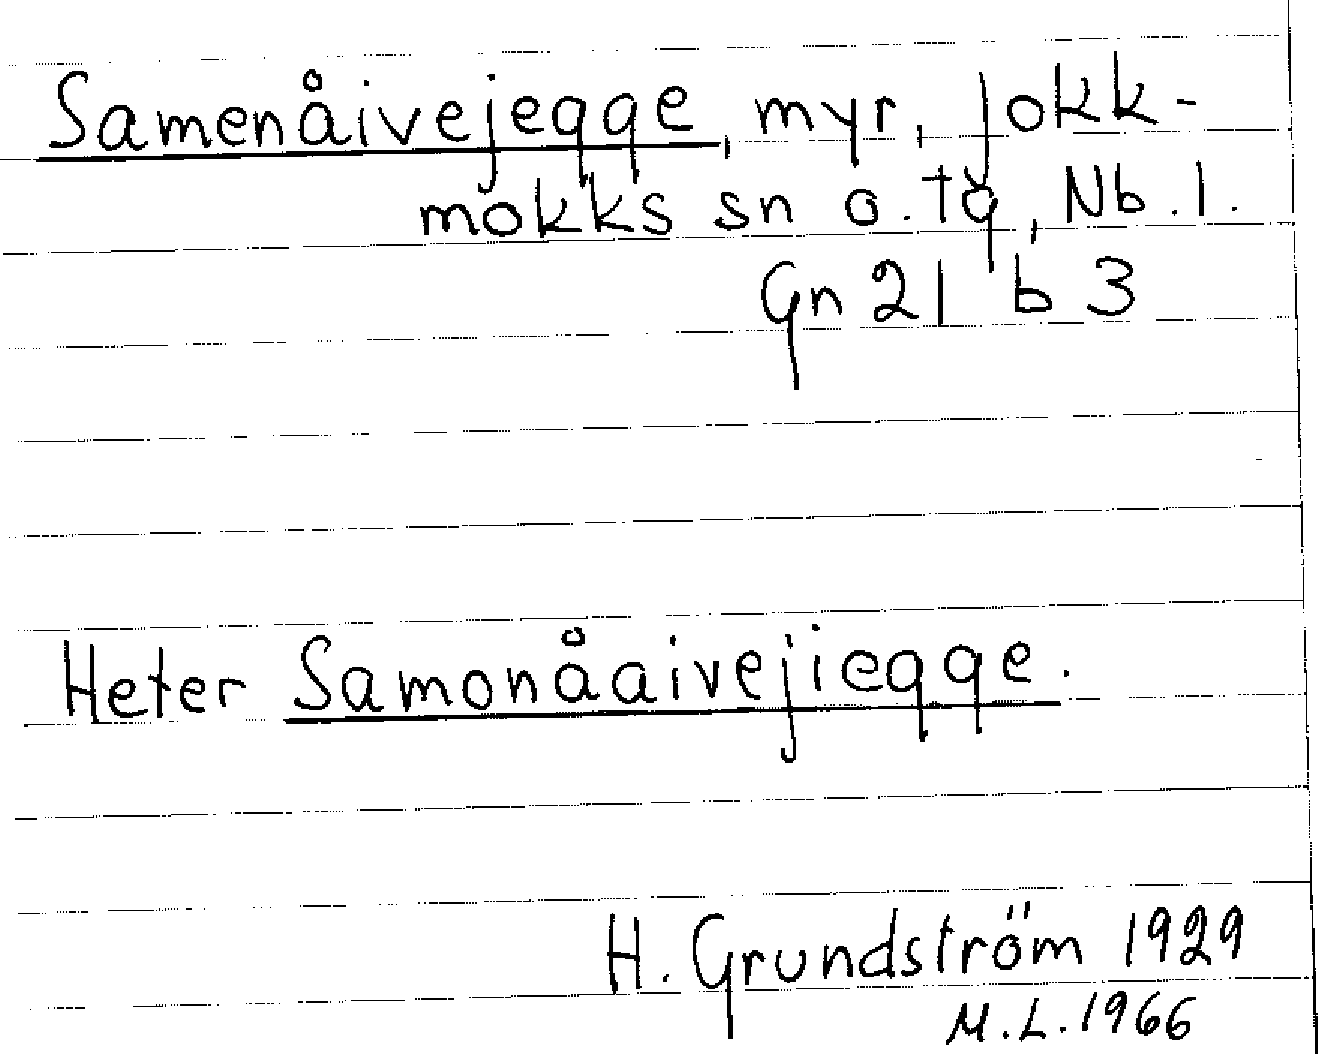 Samenåivejegge, myr, Jokk-
mokks sn o. tg, Nb. l.
Gn 21 b 3
Heter Samonåaivejiegge.
H. Grundström 1929
M.L. 1966